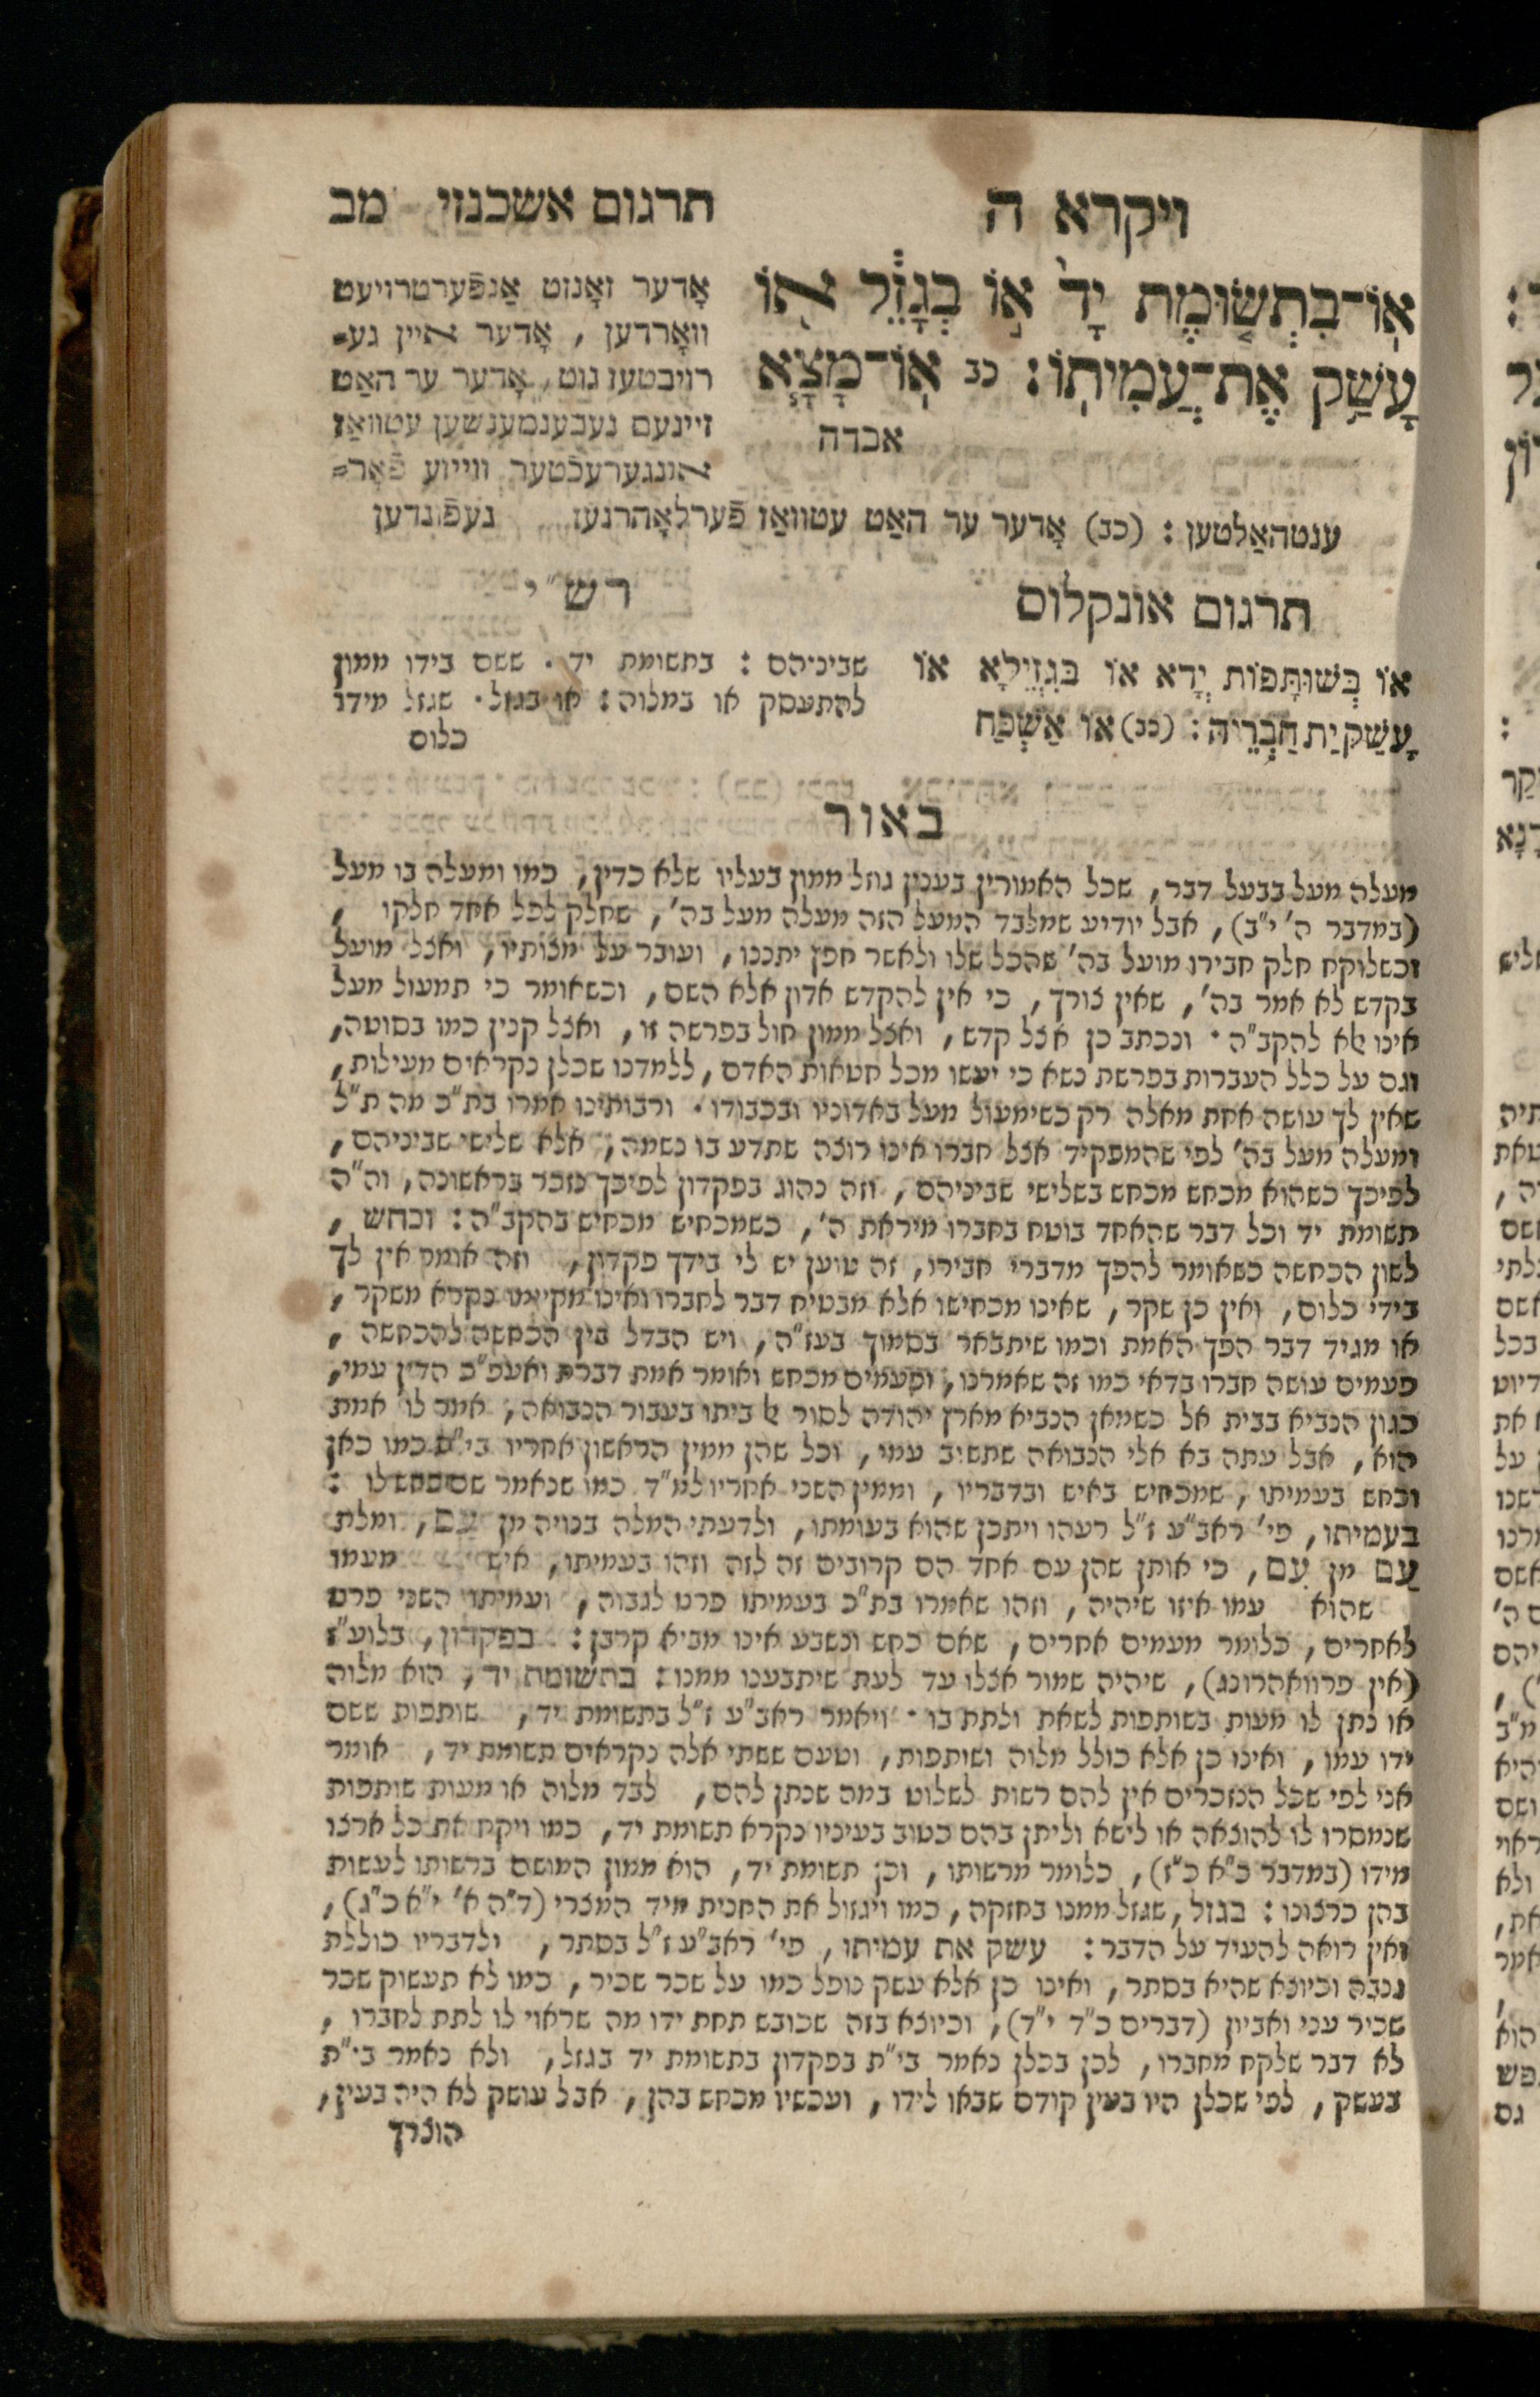 ויקרא ה
תרגום אשכנזי מב
אוֹ־בִתְשׂוּמֶת יָד אוֹ בְגָזֵל אוֹ
עָשַׁק אֶת־עֲמִיתוֹ: כב אוֹ־מָצָא
אבדה
אָדער זאָנסט אַנפֿערטרויעט
וואָרדען, אָדער איין גע=
רויבטעז גוט, אָדער ער האַט
זיינעם נעבענמענשען עטוואַז
אונגערעכֿטער ווייזע פֿאָר=
ענטהאַלטען: (כב) אָדער ער האַט עטוואַז פֿערלאָהרנעז געפֿונדען
תרגום אונקלוס
אוֹ בְּשׁוּתָּפוּת יְדָא אוֹ בִּגְזֵילָא אוֹ
עָשַׁק יַת חַבְרֵיהּ: (כב) אוֹ אַשְׁכַּח
רש"י
שביניהם: בתשומת יד. ששם בידו ממון
להתעסק או במלוה: או בגזל. שגזל מידו
כלום
באור
מעלה מעל בבעל דבר, שכל האמורין בענין גוזל ממון בעליו שלא כדין, כמו ומעלה בו מעל
(במדבר ה' י"ב), אבל יודיע שמלבד המעל הזה מעלה מעל בה', שחלק לכל אחד חלקו,
וכשלוקח חלק חבירו מועל בה' שהכל שלו ולאשר חפץ יתננו, ועובר על מצותיו, ואצל מועל
בקדש לא אמר בה', שאין צורך, כי אין להקדש אדון אלא השם, וכשאומר כי תמעול מעל
אינו אלא להקב"ה. ונכתב כן אצל קדש, ואצל ממון חול בפרשה זו, ואצל קנין כמו בסוטה,
וגם על כלל העברות בפרשת נשא כי יעשו מכל חטאות האדם, ללמדנו שכלן נקראים מעילות,
שאין לך עושה אחת מאלה רק כשימעול מעל באדוניו ובכבודו. ורבותינו אמרו בת"כ מה ת"ל
ומעלה מעל בה' לפי שהמפקיד אצל חברו אינו רוצה שתדע בו נשמה, אלא שלישי שביניהם,
לפיכך כשהוא מכחש מכחש בשלישי שביניהם, וזה נהוג בפקדון לפיכך נזכר בראשונה, וה"ה
תשומת יד וכל דבר שהאחד בוטח בחברו מיראת ה', כשמכחיש מכחיש בהקב"ה: וכחש,
לשון הכחשה כשאומר להפך מדברי חבירו, זה טוען יש לי בידך פקדון, וזה אומר אין לך
בידי כלום, ואין כן שקר, שאינו מכחישו אלא מבטיח דבר לחברו ואינו מקיימו נקרא משקר,
או מגיד דבר הפך האמת וכמו שיתבאר בסמוך בעז"ה, ויש הבדל בין הכחשה להכחשה,
פעמים עושה חברו בדאי כמו זה שאמרנו, ופעמים מכחש ואומר אמת דברת ואעפ"כ הדין עמי,
כגון הנביא בבית אל כשמאן הנביא מארץ יהודה לסור אל ביתו בעבור הנבואה, אמר לו אמת
הוא, אבל עתה בא אלי הנבואה שתשוב עמי, וכל שהן ממין הראשון אחריו בי"ת כמו כאן
וכחש בעמיתו, שמכחיש באיש ובדבריו, וממין השני אחריו למ"ד כמו שנאמר שם כחש לו:
בעמיתו, פי' ראב"ע ז"ל רעהו ויתכן שהוא בעומתו, ולדעתי המלה בנויה מן עם, ומלת
עַם מן עִם, כי אותן שהן עם אחד הם קרובים זה לזה וזהו בעמיתו, איש מעמו
שהוא עמו איזו שיהיה, וזהו שאמרו בת"כ בעמיתו פרט לגבוה, ועמיתו השני פרט
לאחרים, כלומר מעמים אחרים, שאם כחש ונשבע אינו מביא קרבן: בפקדון, בלוע"ז
(אין פרוואהרונג), שיהיה שמור אצלו עד לעת שיתבענו ממנו: בתשומת יד, הוא מלוה
או נתן לו מעות בשותפות לשאת ולתת בו. ויאמר ראב"ע ז"ל בתשומת יד, שותפות ששם
ידו עמו, ואינו כן אלא כולל מלוה ושותפות, וטעם ששתי אלה נקראים תשומת יד, אומר
אני לפי שכל הנזכרים אין להם רשות לשלוט במה שנתן להם, לבד מלוה או מעות שותפות
שנמסרו לו להוצאה או לישא וליתן בהם כטוב בעיניו נקרא תשומת יד, כמו ויקח את כל ארצו
מידו (במדבר כ"א כ"ו), כלומר מרשותו, וכן תשומת יד, הוא ממון המושם ברשותו לעשות
בהן כרצונו: בגזל, שגזל ממנו בחזקה, כמו ויגזול את החנית מיד המצרי (ד"ה א' י"א כ"ג),
ואין רואה להעיד על הדבר: עשק את עמיתו, פי' ראב"ע ז"ל בסתר, ולדבריו כוללת
גנבה וכיוצא שהיא בסתר, ואינו כן אלא עשק נופל כמו על שכר שכיר, כמו לא תעשוק שכר
שכיר עני ואביון (דברים כ"ד י"ד), וכיוצא בזה שכובש תחת ידו מה שראוי לו לתת לחברו,
לא דבר שלקח מחברו, לכן בכלן נאמר בי"ת בפקדון בתשומת יד בגזל, ולא נאמר בי"ת
בעשק, לפי שכלן היו בעין קודם שבאו לידו, ועכשיו מכחש בהן, אבל עושק לא היה בעין,
הוצרך